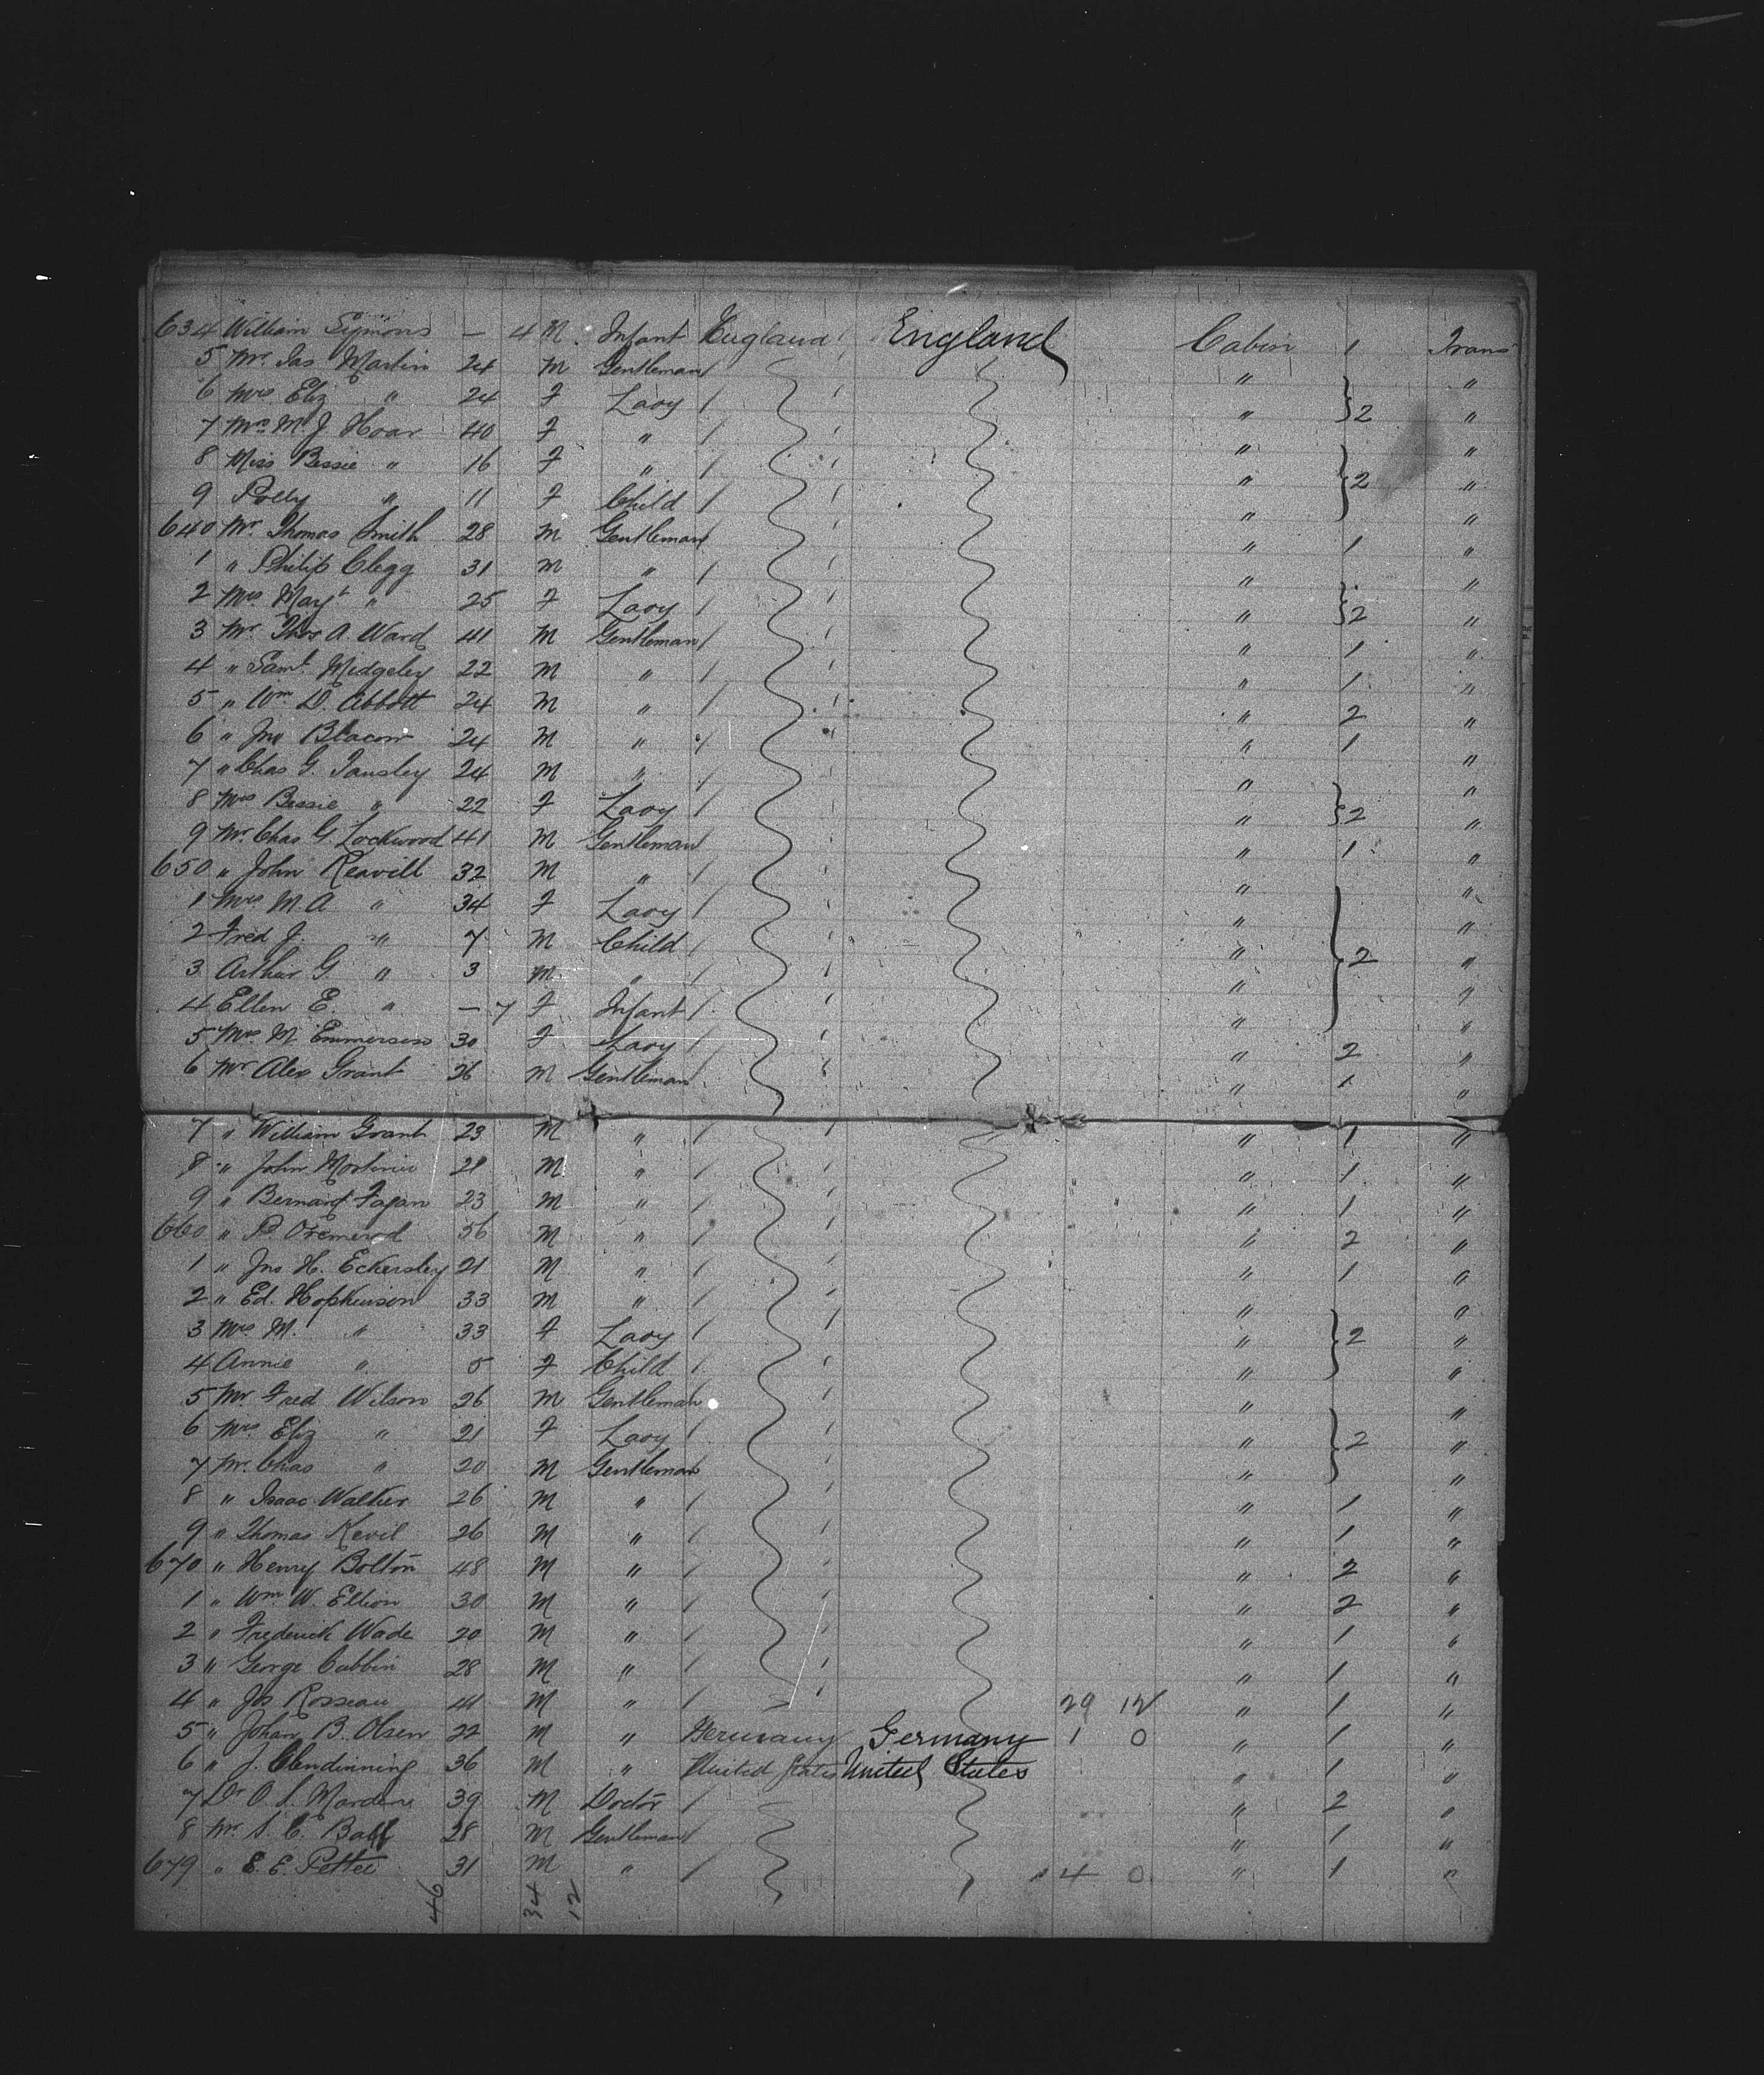 634 William Symons — 4 M. Infant England England Cabin 1 Trans
5 Mr. Jas Martin 24 M Gentleman " "
6 Mrs Eliz " 24 F Lady " } 2 "
7 Mrs M. J. Hoar 40 F " " "
8 Miss Bessie " 16 F " " } 2 "
9 Polly " 11 F Child " "
640 Mr. Thomas Smith 28 M Gentleman " 1 "
1 " Philip Clegg 31 M " " "
2 Mrs Mayt " 25 F Lady " } 2 "
3 Mr. Thos A. Ward 41 M Gentleman " 1 "
4 " Saml. Midgeley 22 M " " 1 "
5 " Wm D. Abbott 24 M " " 2 "
6 " Jno Blacow 24 M " " 1 "
7 " Chas G. Tansley 24 M " " "
8 Mrs Bessie " 22 F Lady " } 2 "
9 Mr. Chas G. Lockwood 41 M Gentleman " 1 "
650 " John Reavill 32 M " " "
1 Mrs M. A " 34 F Lady " "
2 Fred J. " 7 M Child " } 2 "
3 Arthur G. " 3 M " " "
4 Ellen E. " — 7 F Infant " "
5 Mrs. M. Emmerson 30 F Lady " 2 "
6 Mr Alex Grant 26 M Gentleman " 1 "
7 " William Grant 23 M " " 1 "
8 " John 21 M " " 1 "
9 " Bernard Fagan 23 M " " 1 "
660 " P. Ormerod 56 M " " 2 "
1 " Jno H. Eckersley 21 M " " 1 "
2 " Ed. Hopkinson 33 M " " "
3 Mrs M. " 33 F Lady " } 2 "
4 Annie " 5 F Child " "
5 Mr. Fred Wilson 26 M Gentleman " "
6 Mrs Eliz " 21 F Lady " } 2 "
7 Mr. Chas " 20 M Gentleman " "
8 " Isaac Walker 26 M " " 1 "
9 " Thomas Kevil 26 M " " 1 "
670 " Henry Bolton 48 M " " 2 "
1 " Wm. W. Ellion 30 M " " 2 "
2 " Frederick Wade 20 M " " 1 "
3 " George Cubbin 28 M " " 1 "
4 " Jos Rosseau 41 M " 29 12 " 1 "
5 " Johan B. Olsen 22 M " Germany Germany 1 0 " 1 "
6 " J. Clendinning 36 M " United States United States " 1 "
7 Dr O. S. Marden 39 M Doctor " 2 "
8 Mr. S. C. Ball 28 M Gentleman " 1 "
679 " E. E. 31 M " 4 0 " 1 "
46 34 12